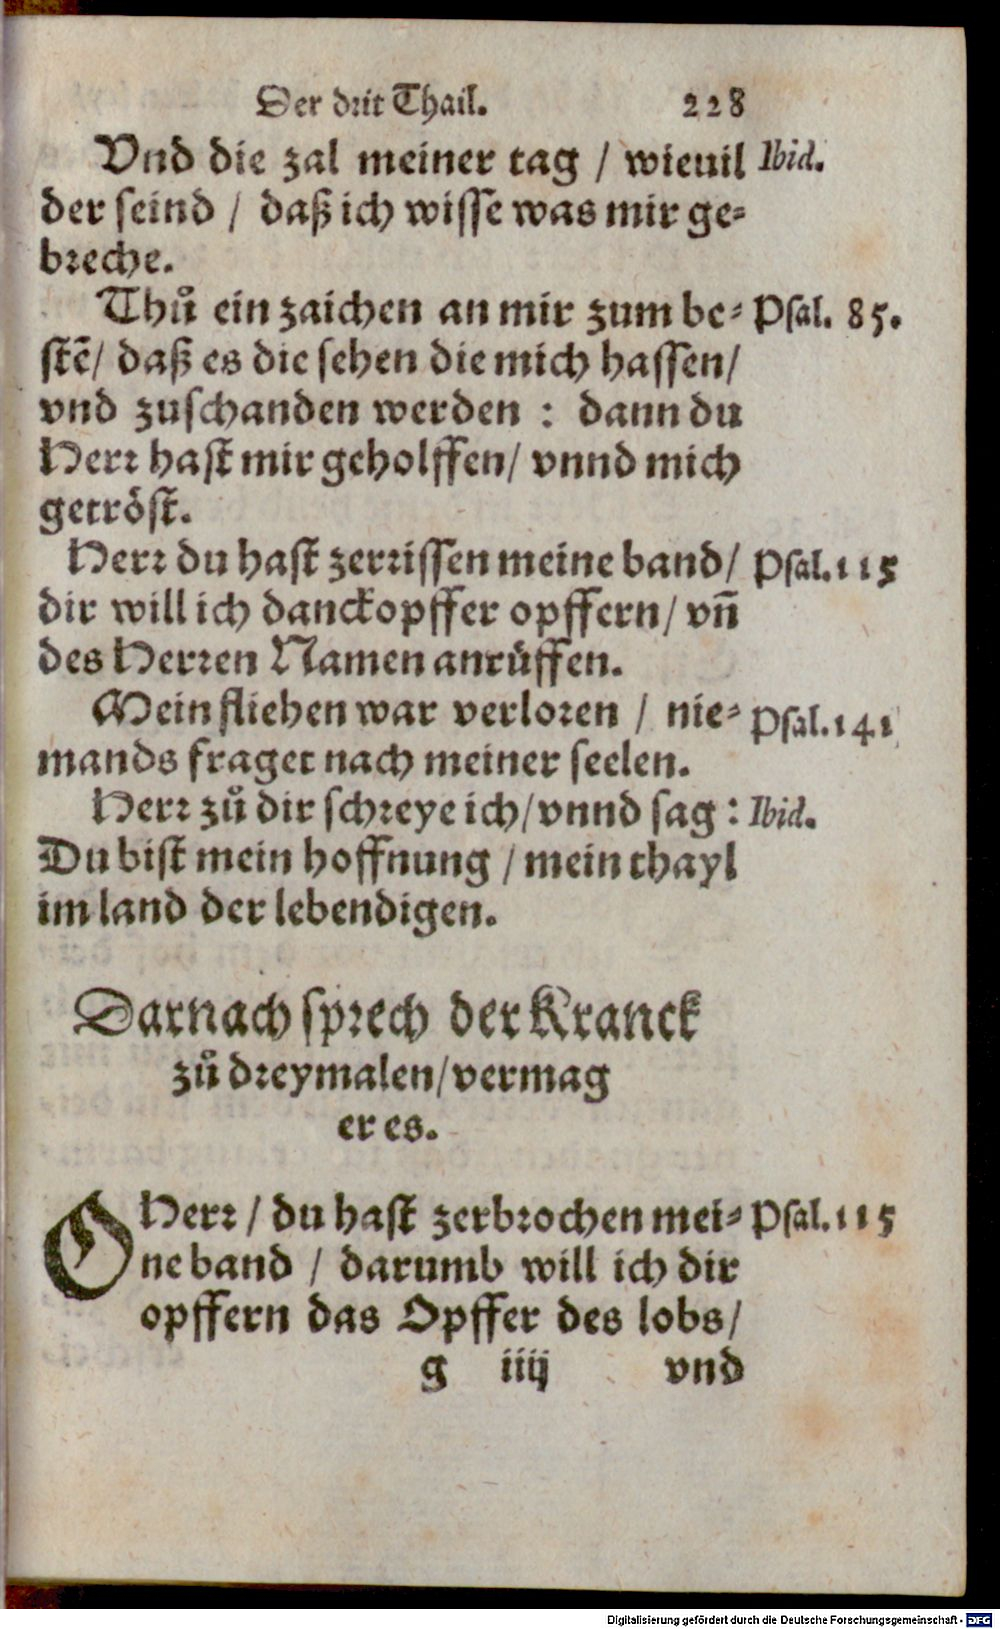 Der drit Thail. 228
Vnd die zal meiner tag / wieuil Ibid.
der seind / daß ich wisse was mir ge⸗
breche.
Thů ein zaichen an mir zum be⸗ Psal. 85.
stẽ/ daß es die sehen die mich hassen/
vnd zuschanden werden : dann du
Herr hast mir geholffen/ vnnd mich
getröst.
Herr du hast zerrissen meine band/ Psal. 115
dir will ich danckopffer opffern/ vñ
des Herren Namen anrüffen.
Mein fliehen war verloren / nie⸗ Psal. 141
mands fraget nach meiner seelen.
Herr zů dir schreye ich/vnnd sag : Ibid.
Du bist mein hoffnung / mein thayl
im land der lebendigen.
Darnach sprech der Kranck
zů dreymalen/vermag
er es.
O Herr / du hast zerbrochen mei⸗ Psal. 115
ne band / darumb will ich dir
opffern das Opffer des lobs/
g iiij vnd
Digitalisierung gefördert durch die Deutsche Forschungsgemeinschaft - DFG